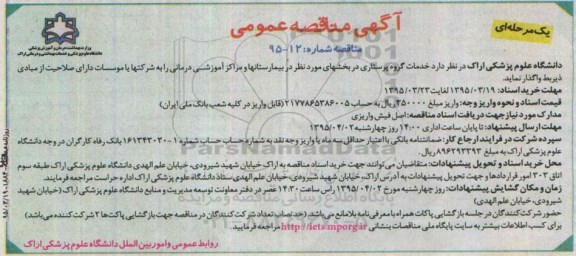 یک مرحله‌ای
آگهی مناقصه عمومی
مناقصه شماره: ۱۲-۹۵
وزارت بهداشت، درمان و آموزش پزشکی
دانشگاه علوم پزشکی و خدمات بهداشتی و درمانی اراک
دانشگاه علوم پزشکی اراک در نظر دارد خدمات گروه پرستاری در بخشهای مورد نظر در بیمارستانها و مراکز آموزشی درمانی را به شرکتها یا موسسات دارای صلاحیت از مبادی
ذیربط واگذار نماید.
مهلت خرید اسناد: ۱۳۹۵/۰۳/۱۹ لغایت ۱۳۹۵/۰۳/۲۳
قیمت اسناد و نحوه واریز وجه: واریز مبلغ ۳۵۰۰۰۰ ریال به حساب ۲۱۷۷۸۶۵۳۸۶۰۰۵ (قابل واریز در کلیه شعب بانک ملی ایران)
مدارک مورد نیاز جهت دریافت اسناد مناقصه: اصل فیش واریزی
مهلت ارسال پیشنهاد: تا پایان ساعت اداری ۱۴:۰۰ روز چهارشنبه ۱۳۹۵/۰۴/۰۲
سپرده شرکت در فرایند ارجاع کار: ضمانتنامه بانکی با اعتبار حداقل سه ماه یا واریز وجه نقد به شماره حساب جاری شماره ۱-۱۶۱۳۴۳۰۳ بانک رفاه کارگران در وجه دانشگاه
علوم پزشکی اراک به مبلغ ۸۹۶۲۹۳۲۹۳ ریال.
محل خرید اسناد و تحویل پیشنهادات: متقاضیان می‌توانند جهت خرید اسناد مناقصه به اراک خیابان شهید شیرودی، خیابان علم الهدی دانشگاه علوم پزشکی اراک طبقه سوم
اتاق ۳۰۳ امور قراردادها و جهت تحویل پیشنهادات به آدرس اراک، خیابان شهید شیرودی، خیابان علم الهدی، ستاد دانشگاه علوم پزشکی اراک اداره حراست مراجعه فرمایند.
زمان و مکان گشایش پیشنهادات: روز چهارشنبه مورخ ۱۳۹۵/۰۴/۰۲ راس ساعت ۱۴:۳۰ عصر در دفتر معاونت توسعه مدیریت و منابع دانشگاه علوم پزشکی اراک (خیابان شهید
شیرودی، خیابان علم الهدی)
حضور شرکت کنندگان در جلسه بازگشایی پاکات همراه با معرفی نامه بلامانع می باشد. (حد نصاب تعداد شرکت کنندگان در مناقصه جهت بازگشایی پاکت‌ها ۲ شرکت کننده می‌باشد)
برای کسب اطلاعات بیشتر به سایت پایگاه ملی مناقصات بنشانی http://iets.mporg.ir مراجعه فرمایید.
روابط عمومی و امور بین الملل دانشگاه علوم پزشکی اراک